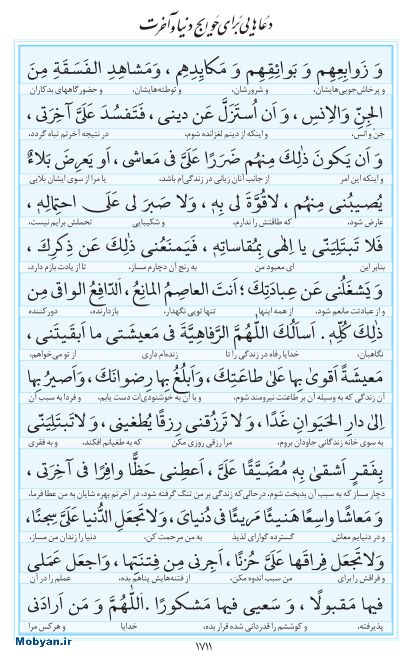 دعاهایی برای حوایج دنیا و آخرت
وَ زَوابِعِهِم وَ بَوائِقِهِم وَ مَکایِدِهِم ، وَمَشاهِدِ الفَسَقَةِ مِنَ
و پرخاش‌جویی‌هایشان، و شرورشان، و توطئه‌هایشان، و حضور گاههای بدکاران
الجِنِّ وَالاِنسِ ، وَ اَن اُستَزَلَّ عَن دینی ، فَتَفسُدَ عَلَیَّ آخِرَتی ،
جن و انس، و اینکه از دینم لغزانده شوم، در نتیجه آخرتم تباه گردد،
وَ اَن یَکونَ ذٰلِکَ مِنهُم ضَرَرًا عَلَیَّ فی مَعاشی ، اَو یَعرِضَ بَلاءٌ
و اینکه این امر از جانب آنان زیانی در زندگی‌ام باشد، یا مرا از سوی ایشان بلایی
یُصیبُنی مِنهُم ، لاقُوَّةَ لی بِهِ ، وَلا صَبرَ لی عَلَی احتِمالِهِ ،
عارض شود، که طاقتش را ندارم، و شکیبایی تحملش برایم نیست،
فَلا تَبتَلِیَنّی یا اِلٰهی بِمُقاساتِهِ ، فَیَمنَعُنی ذٰلِکَ عَن ذِکرِکَ ،
بنابر این ای معبود من به رنج آن دچارم مساز، تا از یادت بازم دارد،
وَ یَشغَلُنی عَن عِبادَتِکَ؛ اَنتَ العاصِمُ المانِعُ ، اَلدّافِعُ الواقی مِن
و از عبادتت مانعم شود، از همه اینها تنها تویی نگهدار، بازدارنده، دور کننده
ذٰلِکَ کُلِّهِ . اَسأَلُکَ اللّٰهُمَّ الرَّفاهِیَّةَ فی مَعیشَتی ما اَبقَیتَنی ،
نگاهبان، خدایا رفاه در زندگی را تا زنده‌ام داری از تو می‌خواهم،
مَعیشَةً اَقویٰ بِها عَلیٰ طاعَتِکَ ، وَاَبلُغُ بِها رِضوانَکَ ، وَاَصیرُ بِها
آن زندگی که به وسیله آن بر طاعتت نیرومند شوم، و با آن به خشنودی‌ات دست یابم، و فردا به سبب آن
اِلیٰ دارِ الحَیَوانِ غَدًا ، وَلا تَرزُقنی رِزقًا یُطغینی ، وَلاتَبتَلِیَنّی
به سوی خانه زندگانی جاودان بروم، مرا رزقی روزی مکن که به طغیانم افکند، و به فقری
بِفَقرٍ اَشقیٰ بِهِ مُضَیَّقًا عَلَیَّ ، اَعطِنی حَظًّا وافِرًا فی آخِرَتی ،
دچار مساز که به سبب آن بدبخت شوم، در حالی که زندگی بر من تنگ گرفته شود، در آخرتم بهره شایان به من عطا فرما،
وَ مَعاشًا واسِعًا هَنیئًا مَریئًا فی دُنیایَ ، وَلاتَجعَلِ الدُّنیا عَلَیَّ سِجنًا،
و در دنیایم معاش گسترده گوارای لذیذ به من مرحمت کن، دنیا را زندان من مساز،
وَلاتَجعَل فِراقَها عَلَیَّ حُزنًا ، اَجِرنی مِن فِتنَتِها ، وَاجعَل عَمَلی
و فراقش را برای من سبب اندوه مکن، از فتنه‌هایش پناهم بده، عملم را در آن
فیها مَقبولًا ، وَ سَعیی فیها مَشکورًا .اَللّٰهُمَّ وَ مَن اَرادَنی
پذیرفته، و کوششم را قدردانی شده قرار بده، خدایا و هر کس مرا
۱۷۱۱
Mobyan.ir